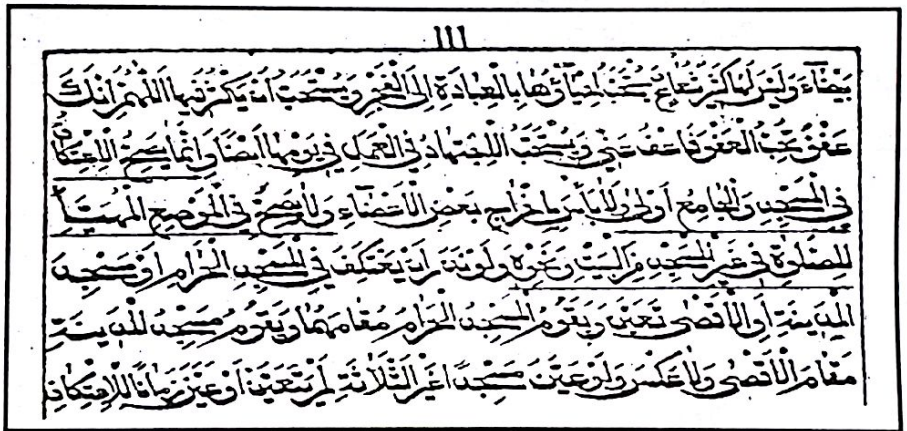 ١١١
بيضاء وليس لها كثير شعاع يستحب إحياؤها بالعبادة إلى الفجر ويستحب أن يكثر فيها اللهم إنك
عفو تحب العفو فاعف عني ويستحب الاجتهاد في العمل في يومها أيضا وإنما يصح الاعتكاف
في المسجد والجامع أولى ولا بأس بإخراج بعض الأعضاء ولا يصح في الموضع المهيأ
للصلوة في غير المسجد من البيت وغيره ولو نذر أن يعتكف في المسجد الحرام أو مسجد
المدينة أو الأقصى تعين ويقوم المسجد الحرام مقامهما ويقوم مسجد المدينة
مقام الأقصى ولا عكس ولو عين مسجدا غير الثلاثة لم يتعين أو عين زمانا للاعتكاف